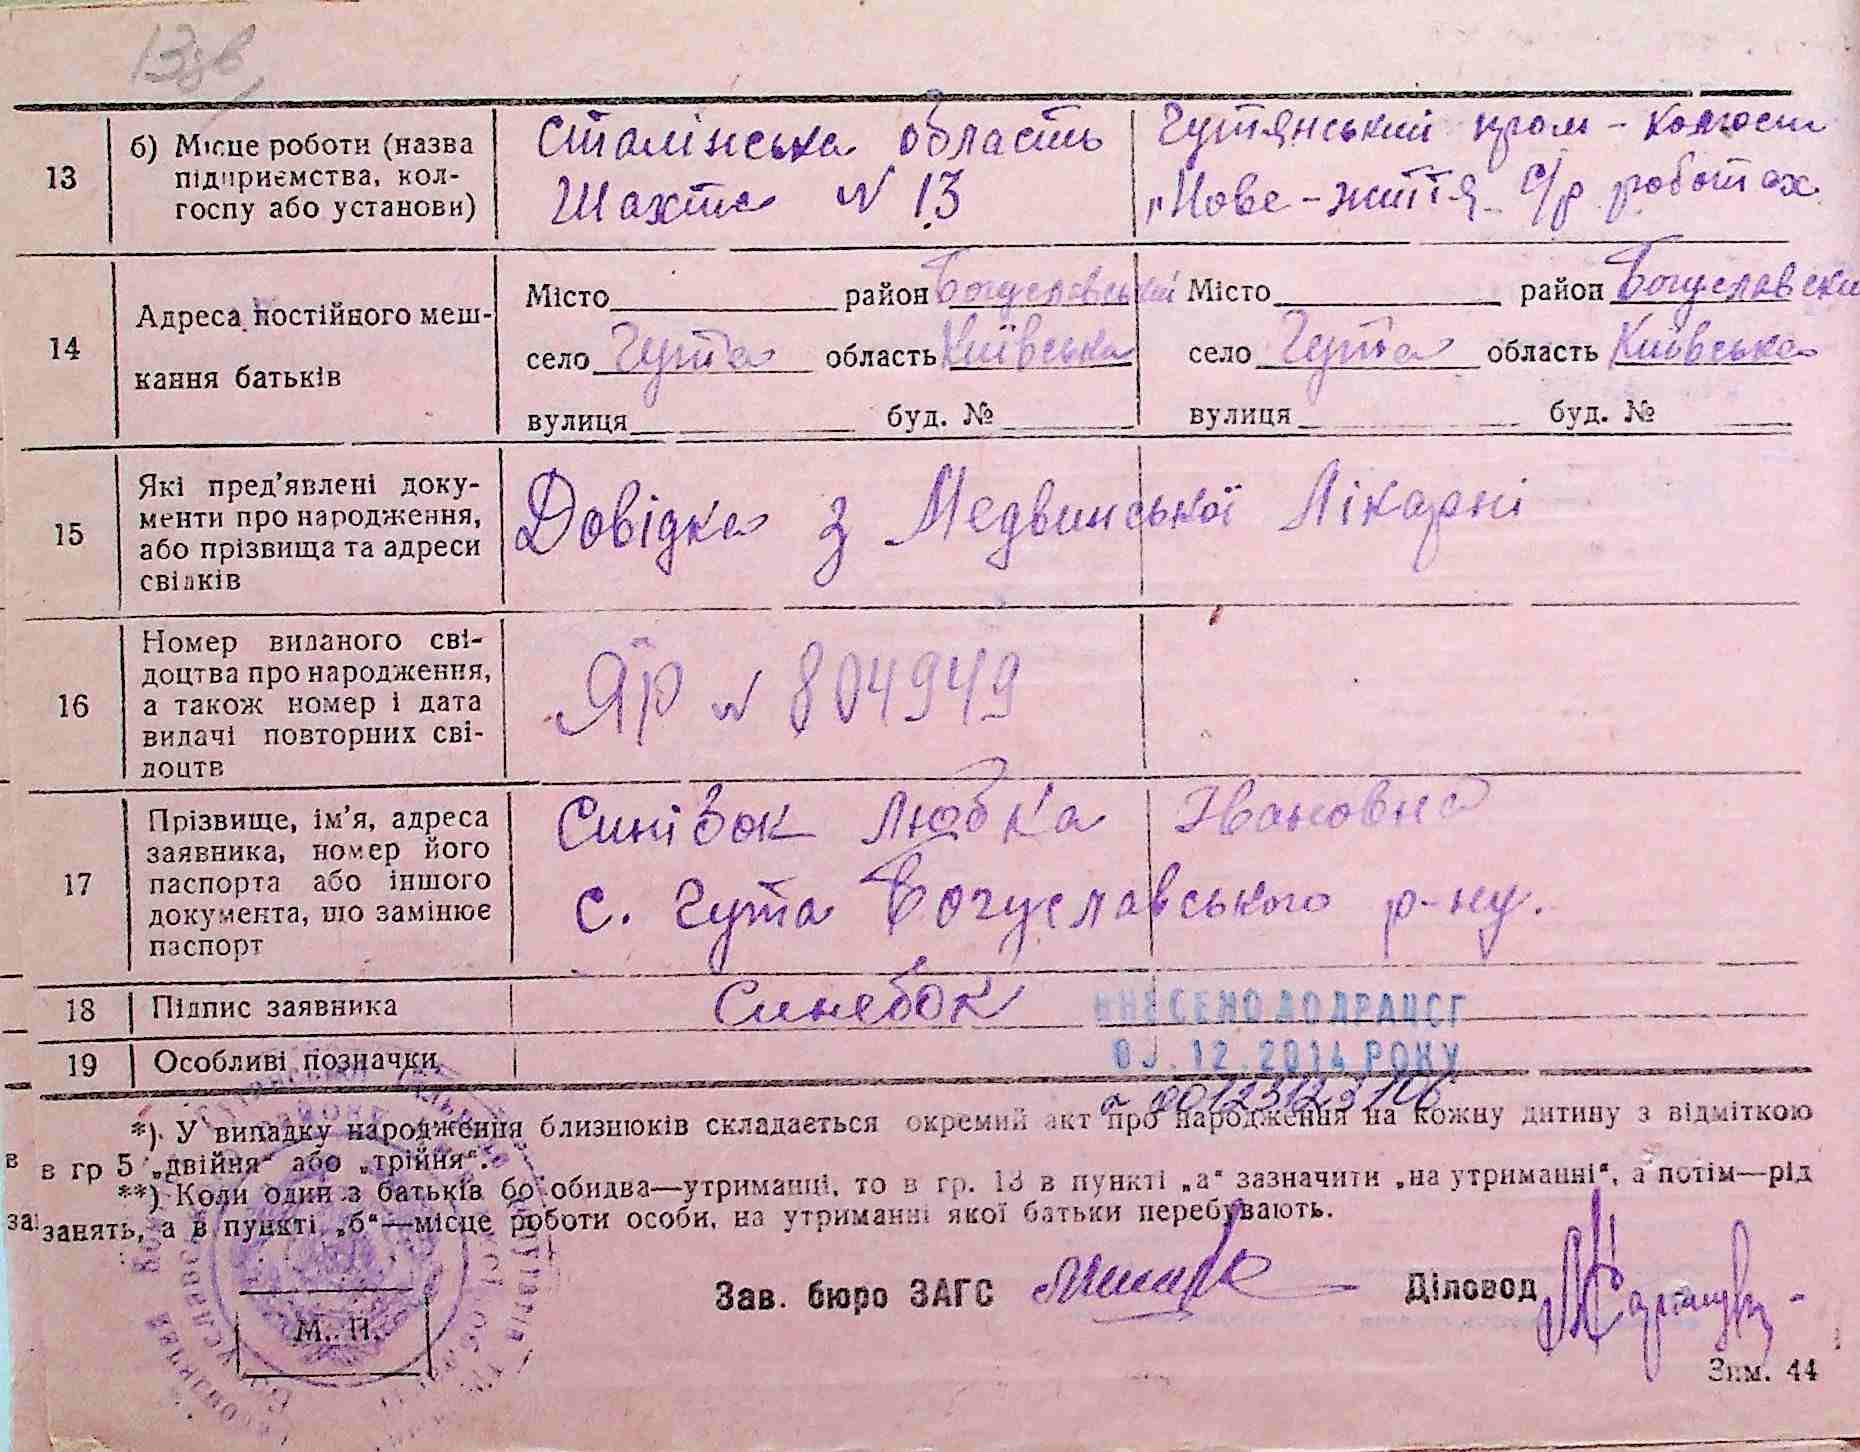 13
б) Місце роботи (назва
підприємства, кол-
госпу або установи)
Сталінська область
Шахта N 13
Гутянський пром - колгосп
„Нове - життя" с/г роботах
14
Адреса постійного меш-
кання батьків
Місто район Богуславський
село Гута область Київська
вулиця буд. №
Місто район Богуславськи
село Гута область Київська
вулиця буд. №
15
Які пред’явлені доку-
менти про народження,
або прізвища та адреси
свідків
Довідка з Медвинської Лікарні
16
Номер виданого сві-
доцтва про народження,
а також номер і дата
видачі повторних сві-
доцтв
ЯР N 804949
17
Прізвище, ім’я, адреса
заявника, номер його
паспорта або іншого
документа, що замінює
паспорт
Синівок Любка Івановна
с. Гута Богуславського р-ну.
18
Підпис заявника
Синебок
19
Особливі позначки
ВНЕСЕНО ДО ДРАЦСГ
.12.2014 РОКУ
00123123106
*) У випадку народження близнюків складається окремий акт про народження на кожну дитину з відміткою
в в гр 5 „двійня“ або „трійня“.
**) Коли один з батьків бо обидва—утриманці, то в гр. 13 в пункті „а“ зазначити „на утриманні“, а потім—рід
за занять, а в пункті „б“—місце роботи особи, на утриманні якої батьки перебувають.
Зав. бюро ЗАГС
Діловод
М. П.
Зим. 44